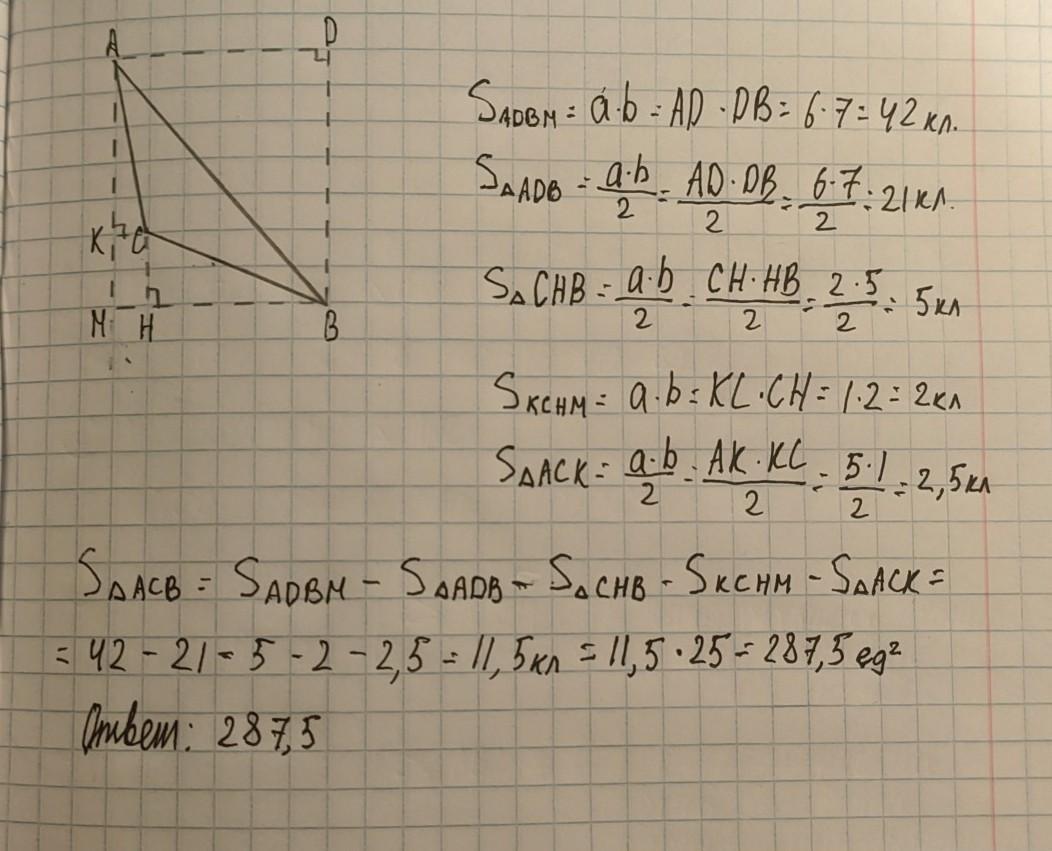 A D
K C
M H B
S ADBM = a·b = AD·DB = 6·7 = 42 кл.
S △ADB = a·b/2 = AD·DB/2 = 6·7/2 = 21 кл.
S △CHB = a·b/2 = CH·HB/2 = 2·5/2 = 5 кл
S KCHM = a·b = KC·CH = 1·2 = 2 кл
S △ACK = a·b/2 = AK·KC/2 = 5·1/2 = 2,5 кл
S △ACB = S ADBM - S △ADB - S △CHB - S KCHM - S △ACK =
= 42 - 21 - 5 - 2 - 2,5 = 11,5 кл = 11,5·25 = 287,5 ед²
Ответ: 287,5